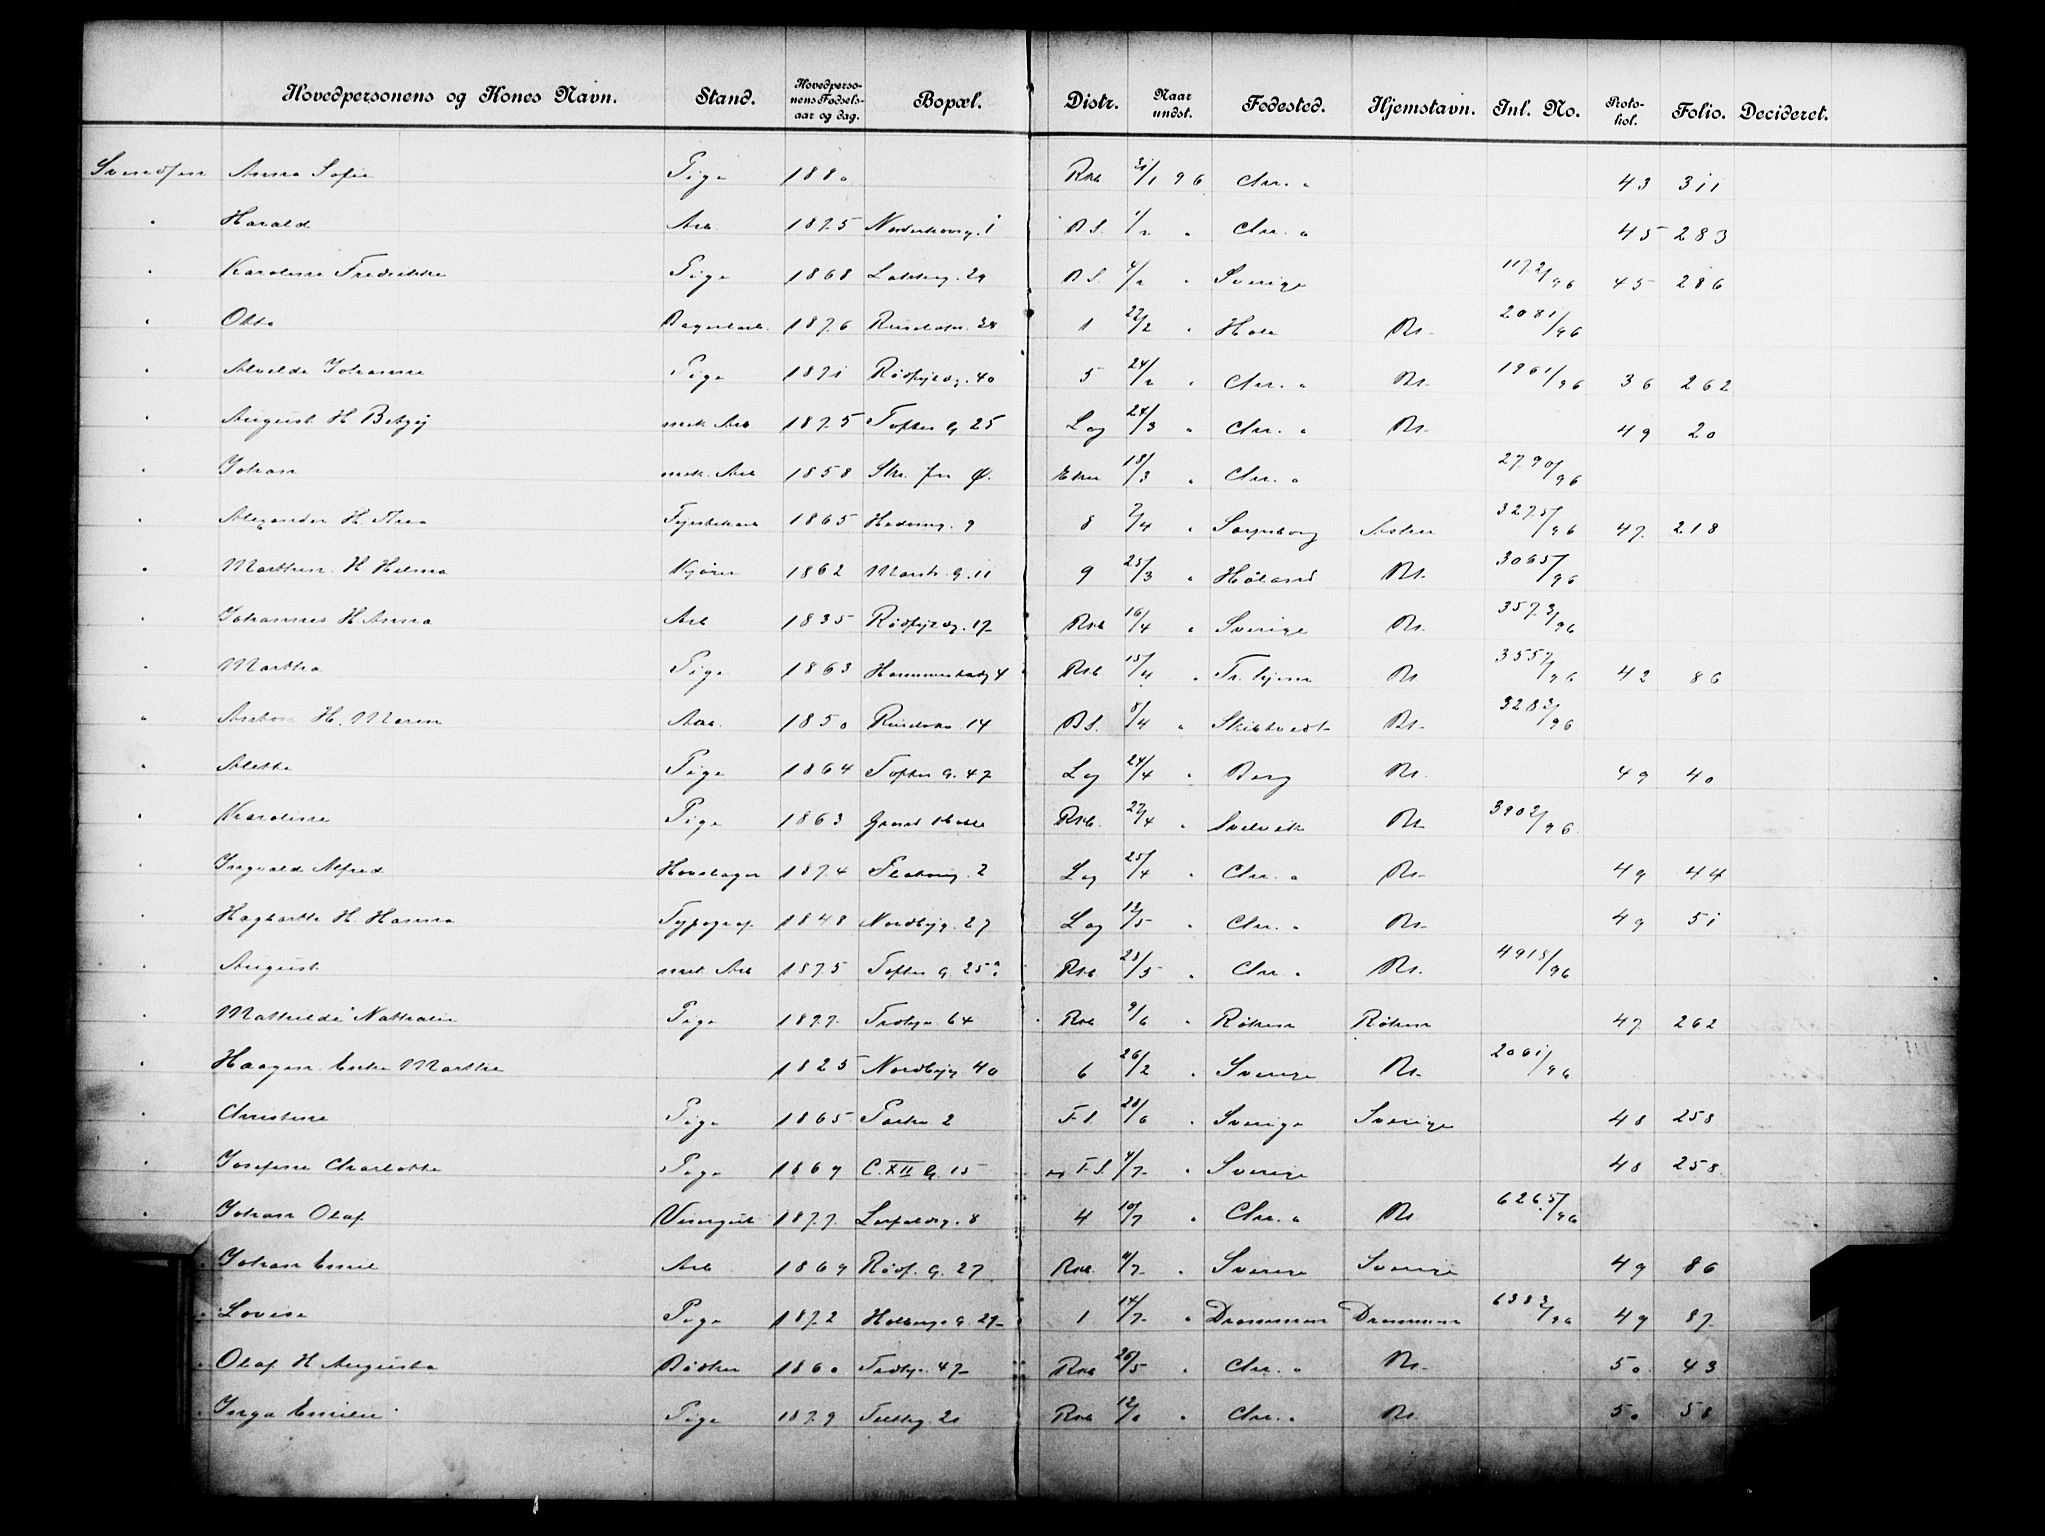 Hovedpersonens og Kones Navn. Stand. Hovedperso-nens Fødsels-aar og dag. Bopæl. Distr. Naar undst. Fødested. Hjemstavn. Inl. No. Proto-kol. Folio. Decideret.
Svendsen Anna Sofie Pige 1880 Rsb 31/1 96 Chr. " 43 311
" Harald Arb. 1875 1 B S. 1/2 " Chr. " 45 283
" Karoline Fredrikke Pige 1868 29 B S. 4/2 " Sverige 1172/96 45 286
" Otto 1876 28 1 22/2 " Hole Bs. 2081/96
" Alvilde Johanne Pige 1871 40 5 24/2 " Chr. " Bs. 1961/96 36 262
" August H. Betzy mek Arb 1875 Toftes G 25 Lag 24/3 " Chr. " Bs. 49 20
" Johan mek. Arb 1858 18/3 " Chr. " 2790/96
" Alexander H. Thea 1865 9 8 7/4 " Sarpsborg Asker 3275/96 47 218
" Marthin H Hilma Kjører 1862 G. 11 9 25/3 " Høland Bs. 3065/96
" Johannes H Anna Arb 1835 17 Rsb 16/4 " Sverige Bs. 3573/96
" Martha Pige 1863 4 Rsb 15/4 " Tr.hjem Bs 3557/96 42 86
" Anton H. Maren Arb. 1850 14 B S. 8/4 " Skibtvedt Bs. 3282/96
" Alette Pige 1864 Toftes G. 47 Lag 24/4 " Berg Bs. 49 40
" Karoline Pige 1863 Grand Hotel Rsb. 27/4 " Svelvik Bs 3902/96
" Ingvald Alfred Hovslager 1874 2 Lag 25/4 " Chr. " Bs. 49 44
" Hagbarth H. Hanna Typograf 1848 Nordbyg. 27 Lag 12/5 " Chr. " Bs. 49 51
" August mek Arb 1875 Toftes G. 25a Rsb 23/5 " Chr. " Bs. 4918/96
" Mathilde Nathalie Pige 1877 64 Rsb 9/6 " Røken Røken 47 262
" Haagen Enke Marthe 1825 Nordbyg 40 6 26/2 " Sverige Bs. 2061/96
" Christine Pige 1865 2 F S. 28/6 " Sverige Sverige 48 258
" Josefine Charlotte Pige 1869 C. XII G. 15 F S. 4/7 " Sverige 48 258
" Johan Olaf Visergut 1877 8 4 10/7 " Chr. " Bs 6265/96
" Johan Emil Arb 1869 Rødf. G. 27 Rsb. 11/7 " Sverige Sverige 49 86
" Lovise Pige 1872 Holbergs G. 27 1 14/7 " Drammen Drammen 6383/96 49 87
" Olaf H Augusta Bødker 1860 47 Rsb 26/5 " Chr. " Bs. 50 43
" Inga Emilie Pige 1879 Rsb " Chr. " Bs. 50 58